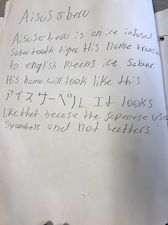 Aisusoberu
Aisusoberu is an ice infused
Sabertooth tiger His name translates
to english means ice Saber.
His name will look like this
アイスサーベル It looks
like that becase the Japenese use
Syambols and not letters.